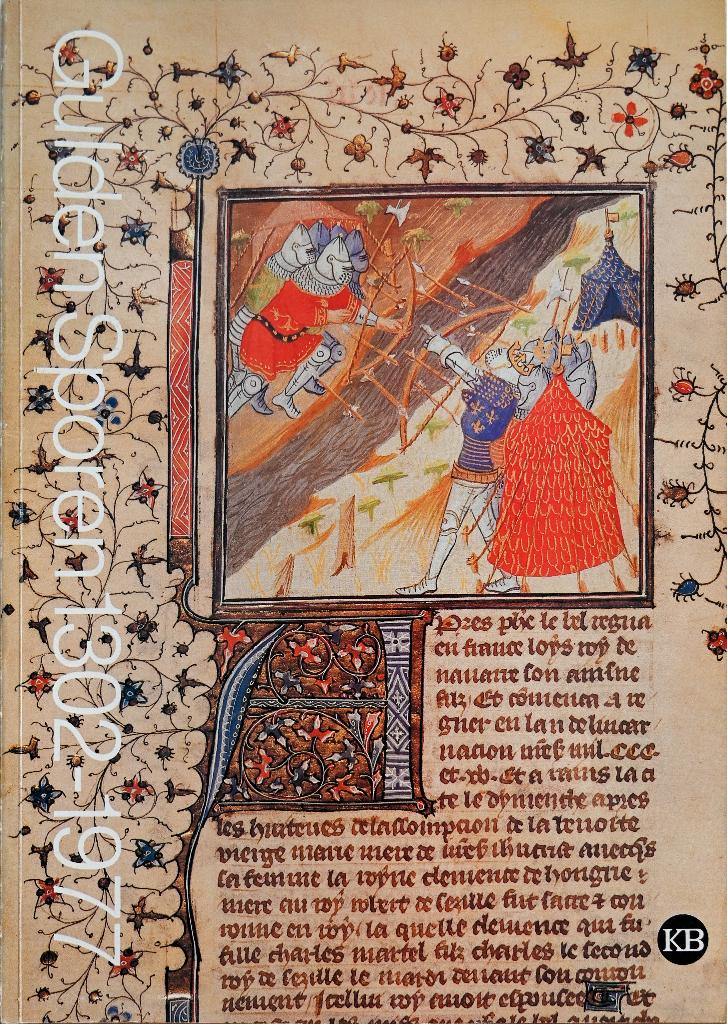 Gulden Sporen 1302-1977
pres phe le bel regna
en france loys roy de
nauarre son ainsne
filz Et comenca a re
gner en lan de lincar
nacion mil CCC
et xv. Et a rains la ci
te le dymenche apres
les huitieues de lassompcion de la benoite
vierge marie mere de
sa femme la royne clemence de hongrie
niece au roy robert de sezille fut sacre & cou
ronne en roy la quelle clemence qui fu
fille charles martel filz charles le second
roy de sezille le mardi deuant son couron
nement Icellui roy auoit espousee Et
KB